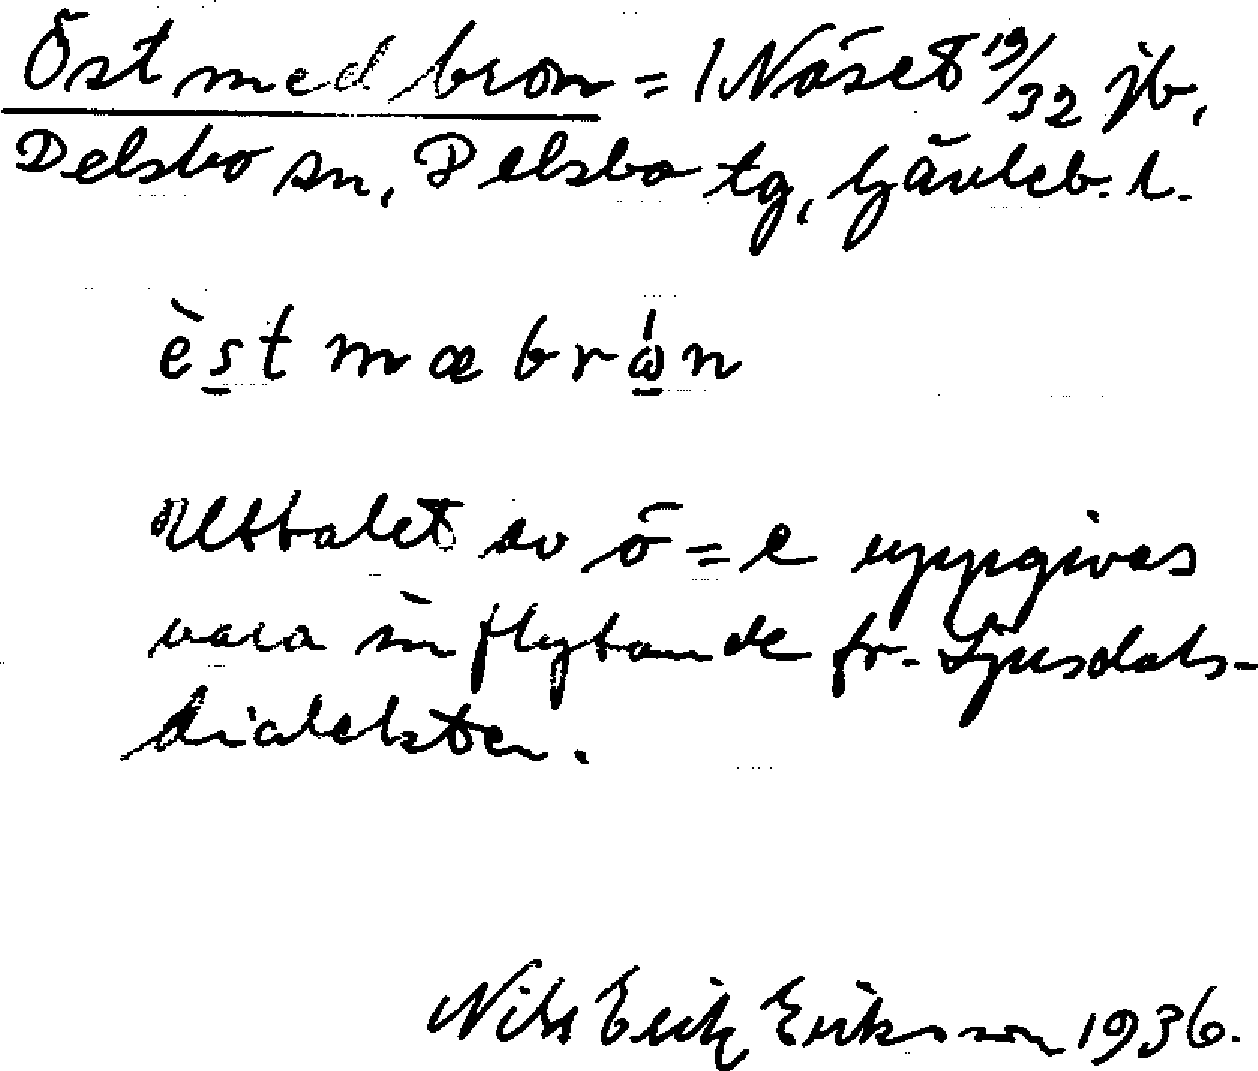 Öst med bron = 1 Näset 19/32 jb,
Delsbo sn, Delsbo tg, Gävleb. l.
èst mæ brώn
Uttalet av ö = e uppgives
vara inflytande fr. Ljusdals-
dialekten.
Nils Erik Eriksson 1936.